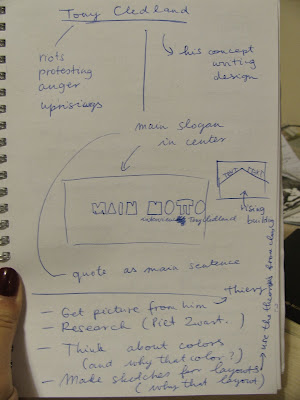 Tony Cledland
riots
protesting
anger
uprisings
his concept
writing
design
main slogan
in center
TEXT TEXT
MAIN MOTTO
Tony Cledland
rising
building
quote as main sentence
theory
– Get picture from him
– Research (Piet Zwart.)
– Think about colors
(and why that color?)
– Make sketches for layouts
(why that layout)
use the theories from class